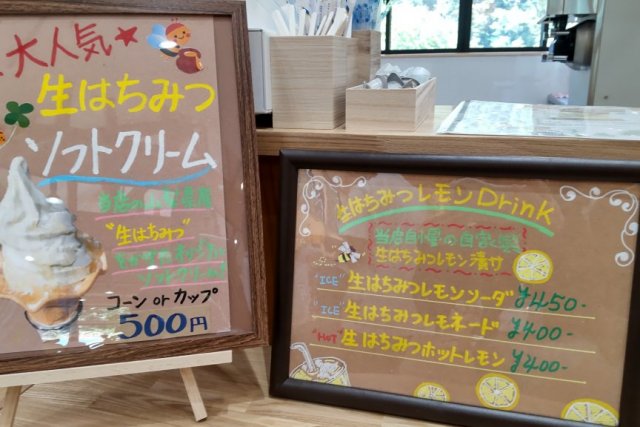 大人気★
生はちみつ
ソフトクリーム
当店の
"生はちみつ"
ソフトクリーム!
コーン or カップ
500円
生はちみつレモンDrink
当店自慢の自家製
生はちみつレモン漬け
"ICE" 生はちみつレモンソーダ ¥450-
"ICE" 生はちみつレモネード ¥400-
"HOT" 生はちみつホットレモン ¥400-